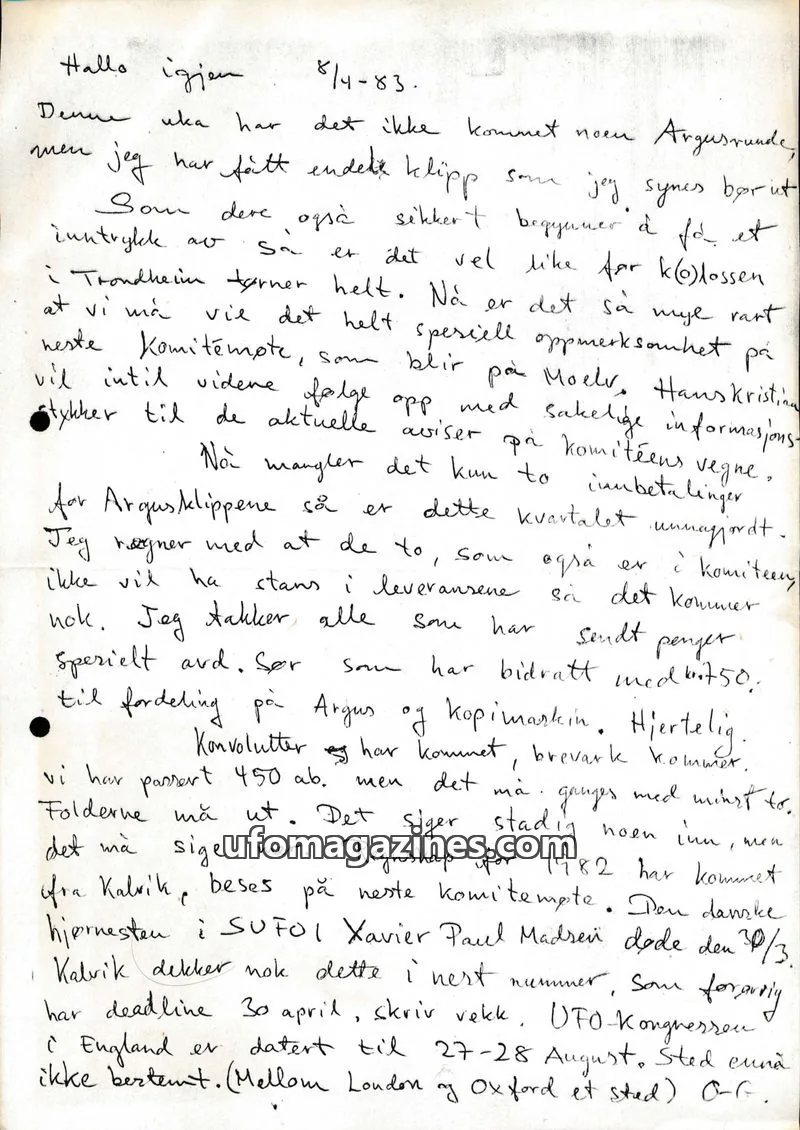 Hallo igjen 8/4-83.
Denne uka har det ikke kommet noen Argusrunde,
men jeg har fått endel klipp som jeg synes bør ut
Som dere også sikkert begynner å få et
inntrykk av så er det vel like før k(o)lossen
i Trondheim tørner helt. Nå er det så mye rart
at vi må vie det helt spesiell oppmerksomhet på
neste Komitémøte, som blir på Moelv. Hans Kristian
vil intil videre følge opp med sakelige informasjons-
stykker til de aktuelle aviser på komitéens vegne.
Nå mangler det kun to innbetalinger
for Argusklippene så er dette kvartalet unnagjordt.
Jeg regner med at de to, som også er i komiteen,
ikke vil ha stans i leveransene så det kommer
nok. Jeg takker alle som har sendt penger
spesielt avd. Sør som har bidratt med kr. 750.
til fordeling på Argus og kopimaskin. Hjertelig.
Konvolutter har kommet, brevark kommer.
vi har passert 450 ab. men det må ganges med minst to.
Folderne må ut. Det siger stadig noen inn, men
det må sige ufomagazines.com 1982 har kommet
ifra Kalvik, beses på neste komitemøte. Den danske
hjørnesten i SUFOI Xavier Paul Madsen døde den 30/3.
Kalvik dekker nok dette i nest nummer, som forøvrig
har deadline 30 april, skriv vekk. UFO-Kongressen
i England er datert til 27-28 August. Sted ennå
ikke bestemt. (Mellom London og Oxford et sted) O-G.